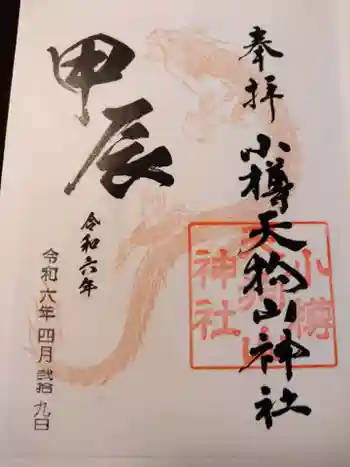 奉拝
小樽天狗山神社
小樽
天狗山
神社
甲辰
令和六年
令和六年四月弐拾九日